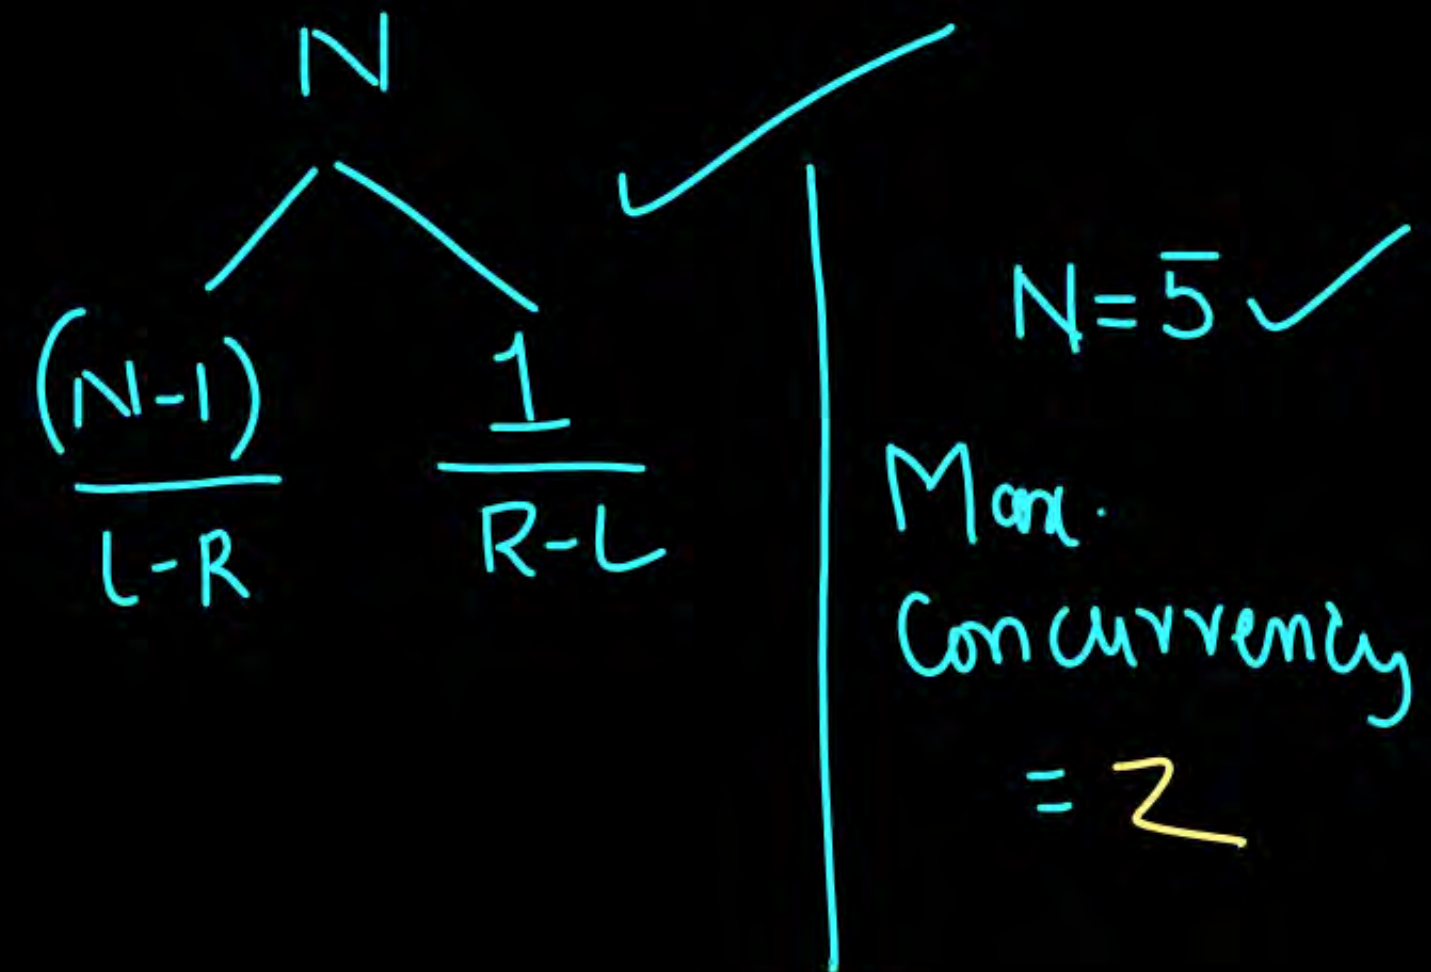 N
(N-1) 1
L-R R-L
N=5
Max.
Concurrency
= 2